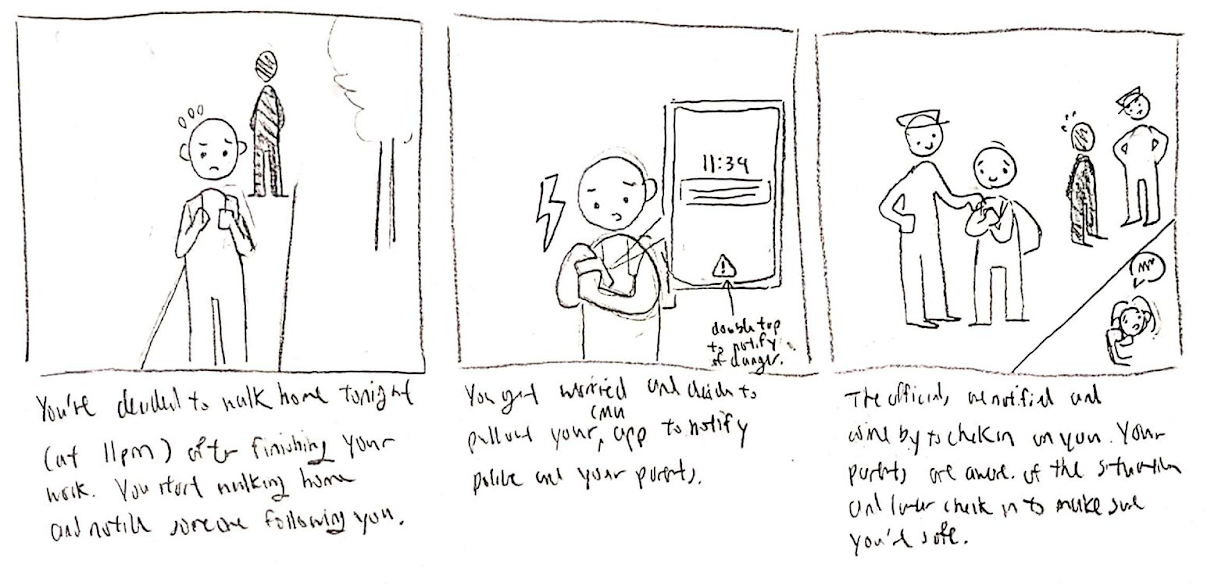 11:39
!
double tap
to notify
of danger.
You've decided to walk home tonight
(at 11pm) after finishing your
work. You start walking home
and notice someone following you.
You get worried and decide to
pull out your CMU app to notify
police and your parents.
The officials are notified and
come by to check in on you. Your
parents are aware of the situation
and later check in to make sure
you're safe.